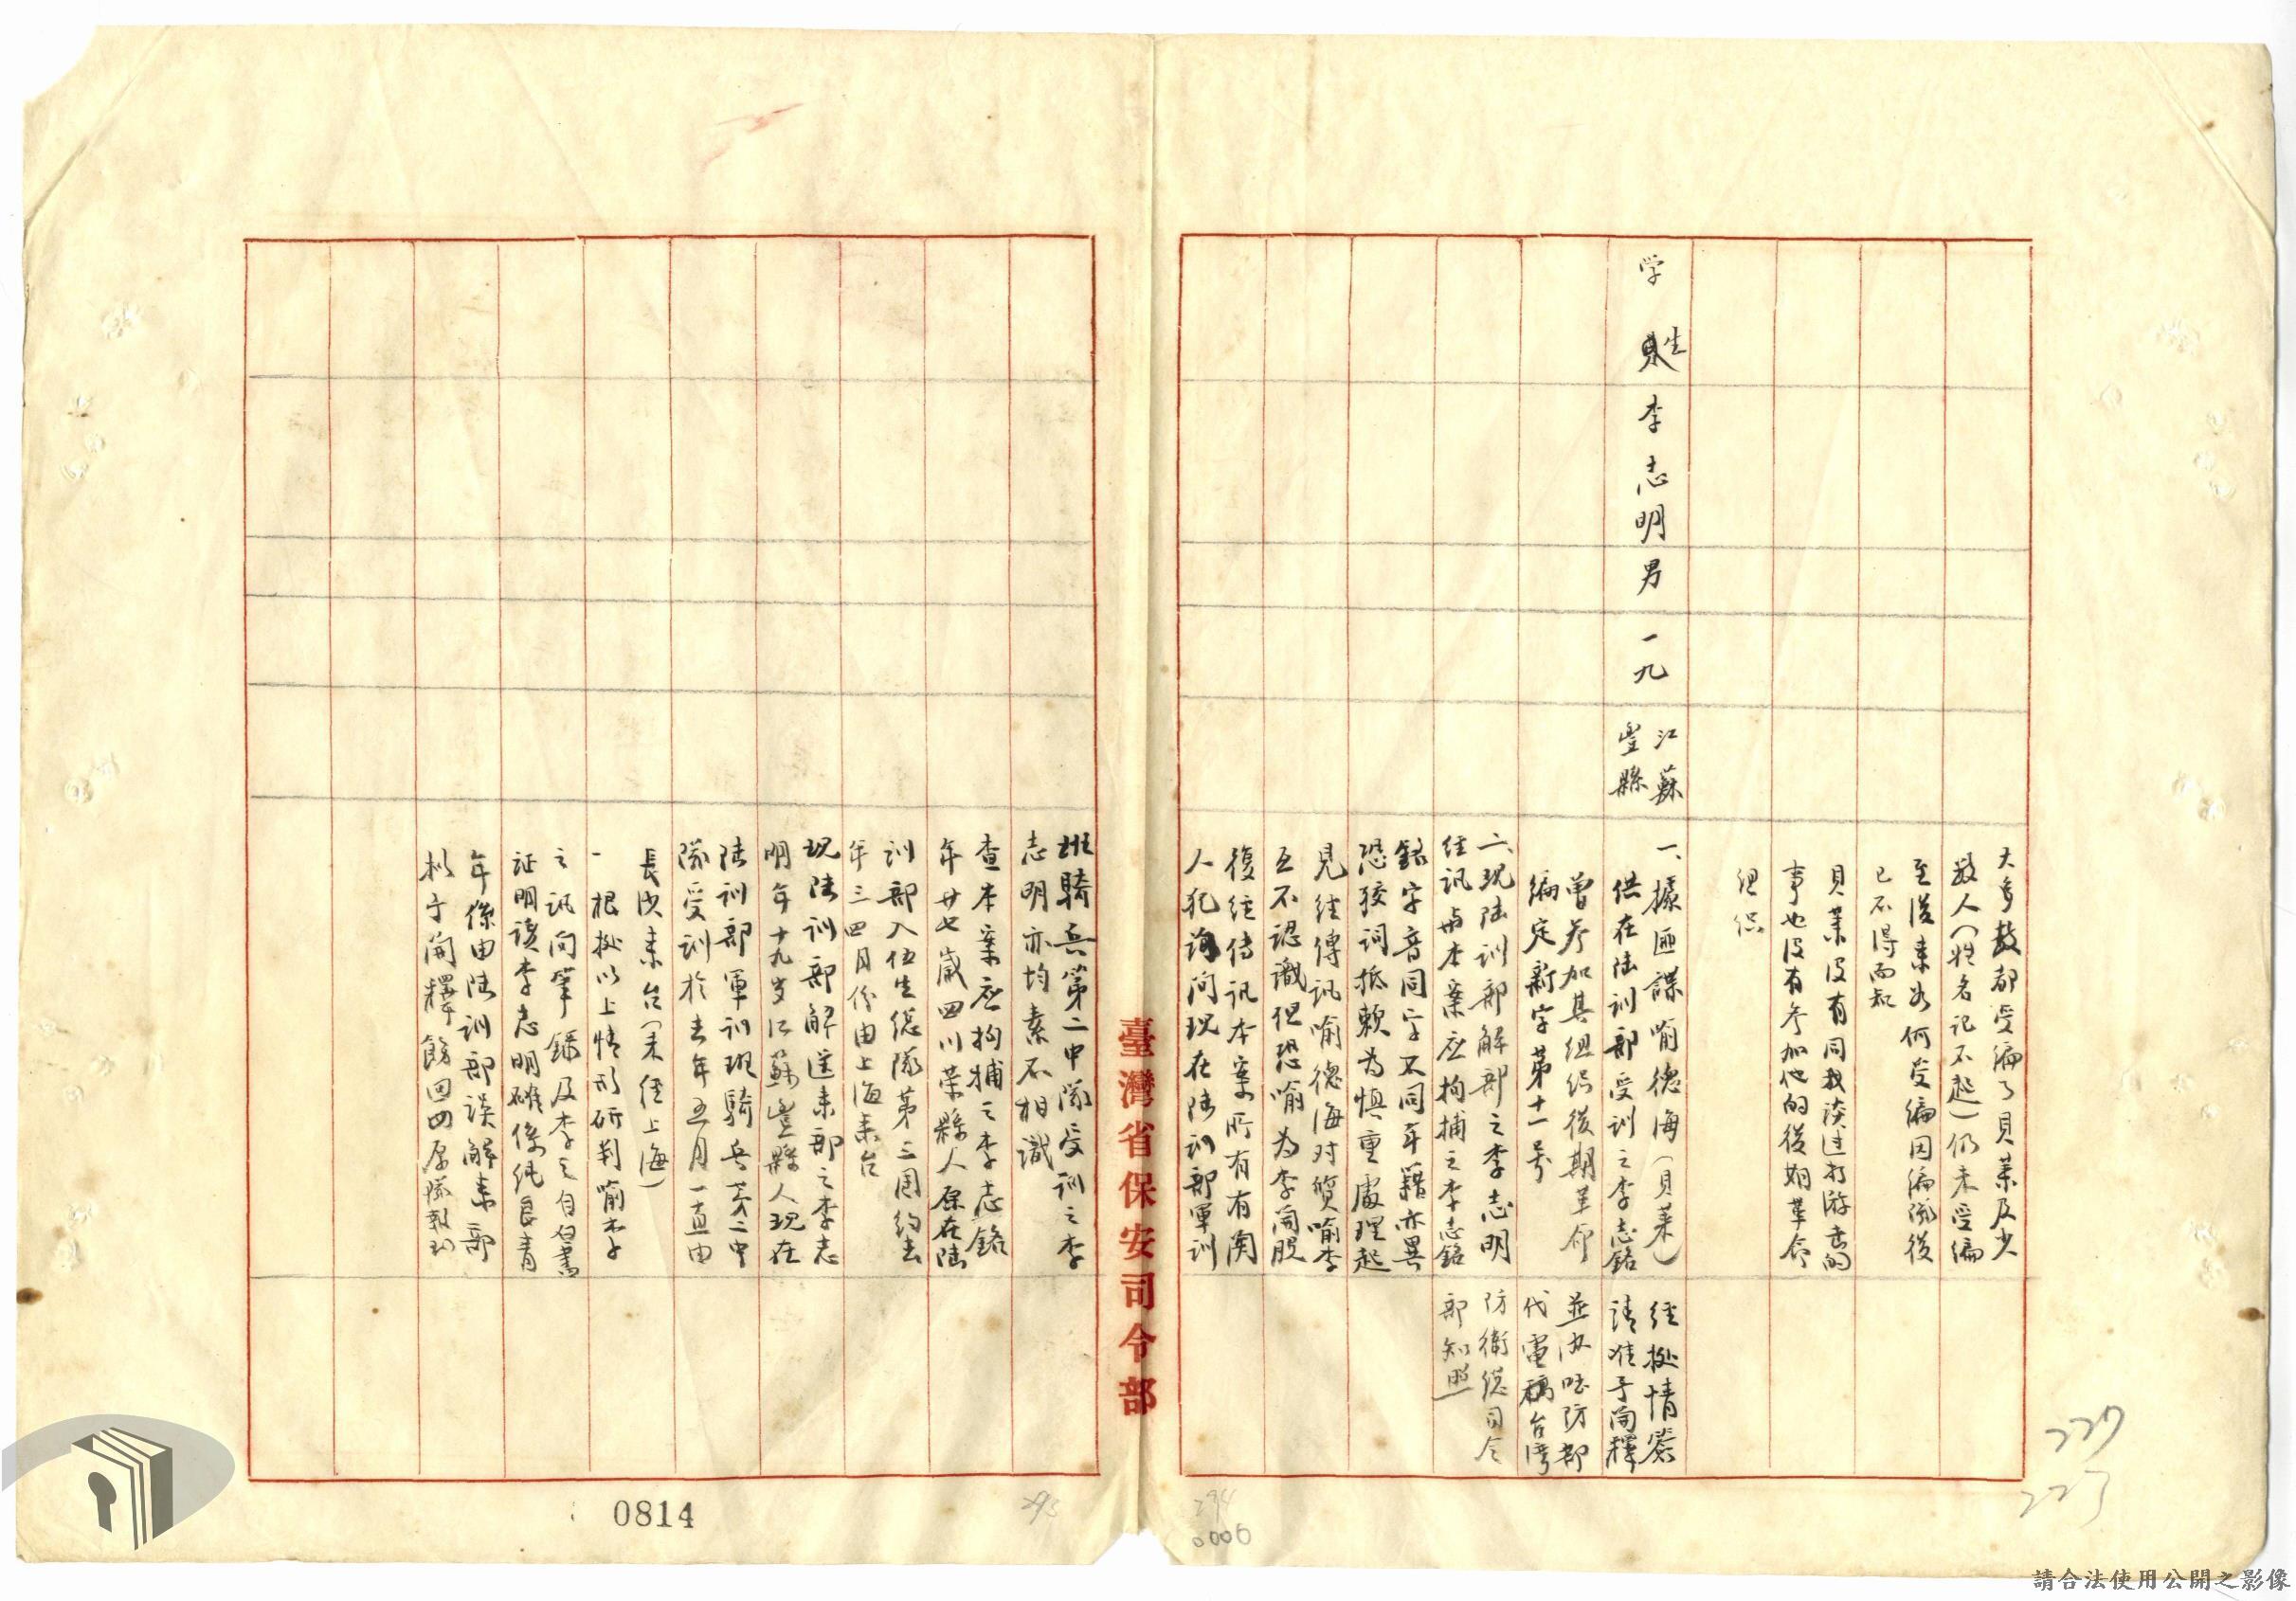 大多数都受编了貝萊及少
数人(姓名記不起)仍未受編
至後来如何受编因编隊後
已不得而知
貝萊沒有同我談过打游击的
事也沒有参加他的後期革命
组织
学生
李志明
男
一九
江蘇
豊縣
一、據匪諜喻德海(貝萊)
供在陆訓部受訓之李志銘
曾参加其组织後期革命
编定新字第十一号
二、现陆訓部解部之李志明
经訊与本案应拘捕之李志銘
銘字音同字不同年籍亦異
恐狡词抵赖为慎重處理起
見经傳訊喻德海对質喻李
互不認識但恐喻为李開脱
復经传訊本案所有有関
人犯詢问现在陆訓部軍訓
经擬情簽
請准予開釋
並办
防部
代電稿台湾
防衛總司令
部知照
臺灣省保安司令部
班騎兵第二中隊受訓之李
志明亦均素不相識
查本案应拘捕之李志銘
年廿七歲四川荣縣人原在陆
訓部入伍生總隊第三團约去
年三四月份由上海来台
现陆訓部解送来部之李志
明年十九岁江蘇豊縣人现在
陆訓部軍訓班騎兵第二中
隊受訓於去年五月一直由
長沙来台(未经上海)
一根据以上情形研判喻李
之訊问筆錄及李之自白書
证明该李志明確係纯良青
年係由陆訓部誤解来部
擬予開釋飭回四原隊報到
0814
293
294
0006
227
223
請合法使用公開之影像